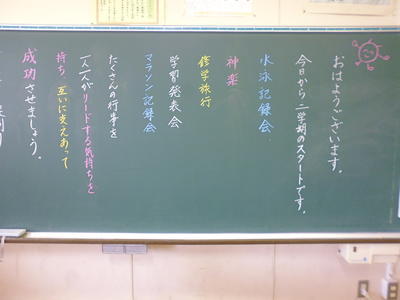 おはようございます。
今日から二学期のスタートです。
水泳記録会
神楽
修学旅行
学習発表会
マラソン記録会
たくさんの行事を
一人一人がリードする気持ちを
持ち、互いに支えあって
成功させましょう。